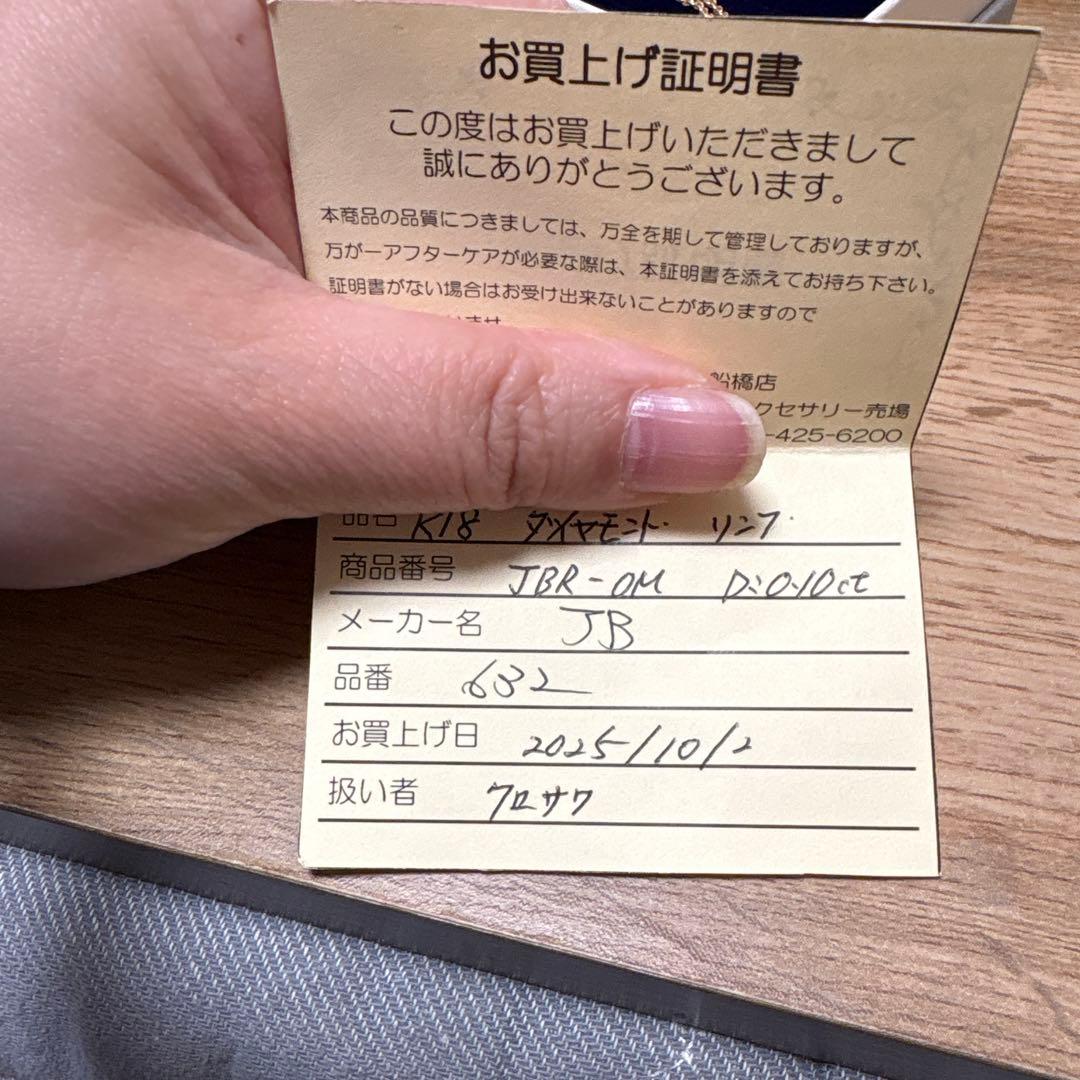 お買上げ証明書
この度はお買上げいただきまして
誠にありがとうございます。
本商品の品質につきましては、万全を期して管理しておりますが、
万が一アフターケアが必要な際は、本証明書を添えてお持ち下さい。
証明書がない場合はお受け出来ないことがありますので
いませ
船橋店
クセサリー売場
-425-6200
品名 K18 ダイヤモンド リング
商品番号 JBR-0M D:0.10ct
メーカー名 JB
品番 632
お買上げ日 2025/10/2
扱い者 クロサワ